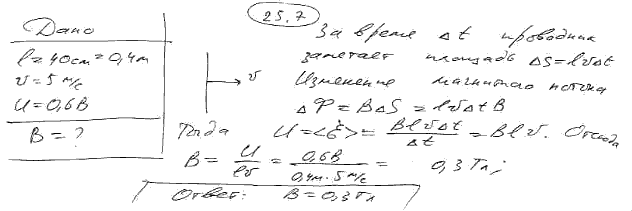 25.7
Дано
l = 40см = 0,4м
v = 5 м/с
U = 0,6В
B = ?
v
За время Δt проводник
заметает площадь ΔS = lvΔt
Изменение магнитного потока
ΔΦ = BΔS = lvΔtB
Тогда U = <ℰ> = BlvΔt/Δt = Blv. Отсюда
B = U/lv = 0,6В/0,4м·5м/с = 0,3Тл;
Ответ: B = 0,3Тл